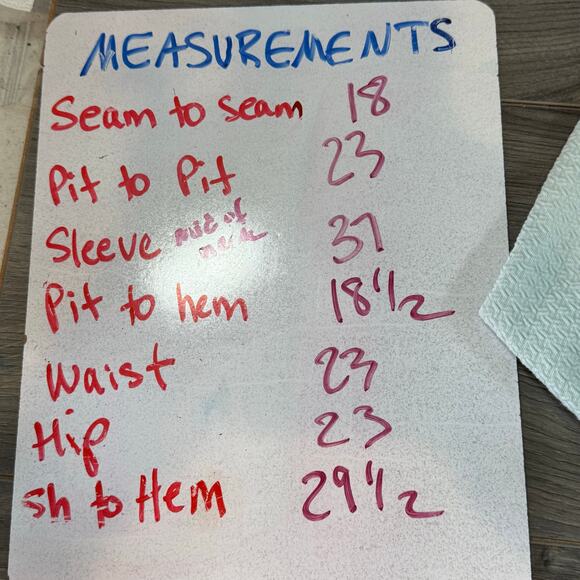 MEASUREMENTS
Seam to seam 18
Pit to Pit 23
Sleeve of
Pit to hem 18 1/2
Waist 23
Hip 23
sh to Hem 29 1/2